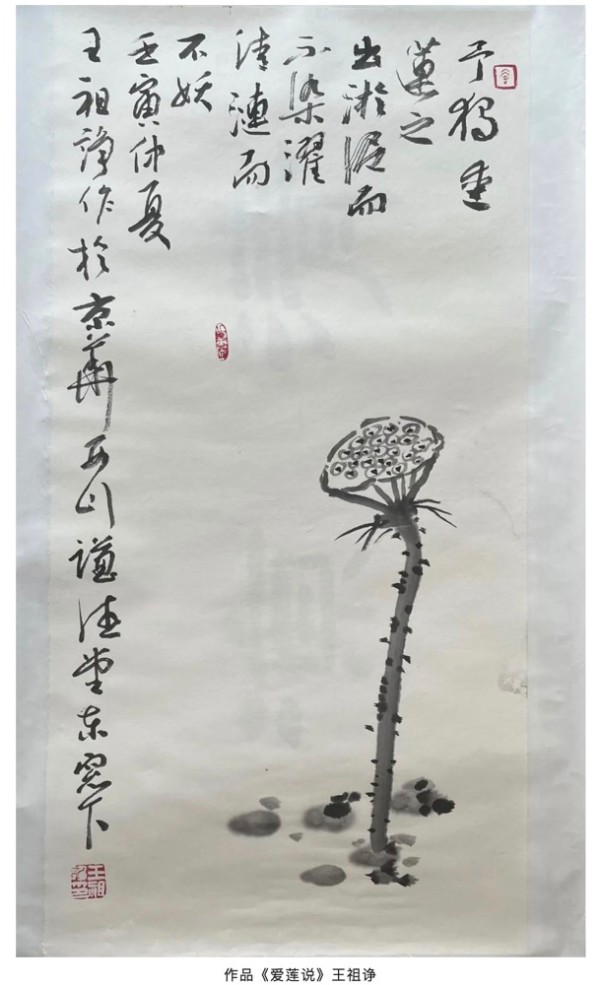 予独爱
蓮之
出淤泥而
不染濯
清漣而
不妖
壬寅仲夏
王祖諍作於京華西山謙德堂东窓下
作品《爱莲说》王祖诤